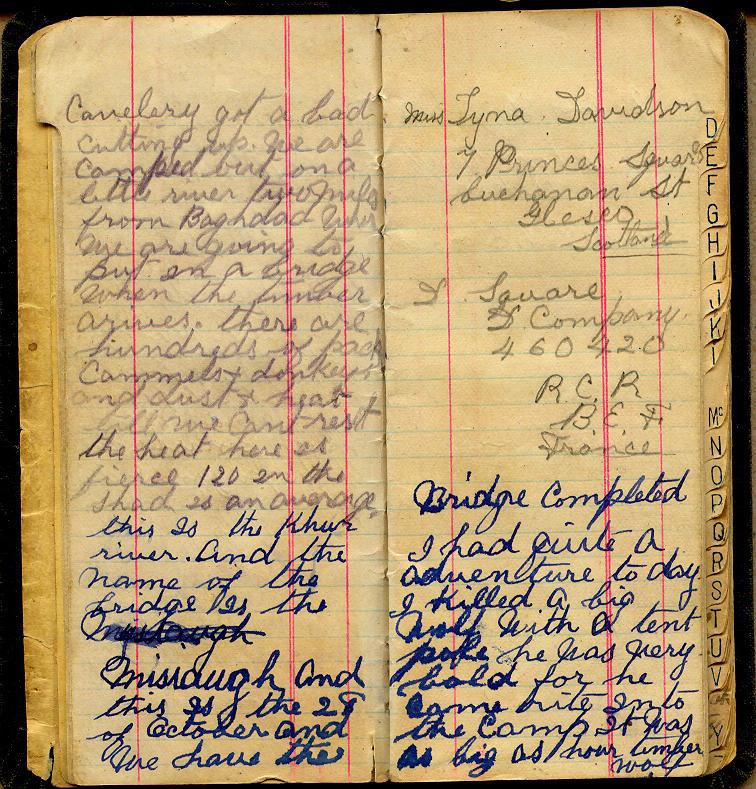 Cavelery got a bad
cutting up. We are
camped out on a
little river two miles
from Baghdad wher
We are going to
put in a bridge
when the timber
arives. there are
hundreds of pack
Cammels & donkeys
and dust & heat
till we Cant rest
the heat here is
fierce 120 in the
shad is an average
this is the Khur
river. And the
name of the
bridge is the
Missaugh And
this is the 29
of October and
We have the
Miss Tyna Davidson
7 Princes Square
Buchanan St
Glesco
Scotland
D. Square
D Company.
460420
R.C.R
B.E.F
France
Bridge Completed
I had quite a
adventure to day
I killed a big
with a tent
pole he was very
bold for he
came rite in to
the Camp It was
as big as hour timber
wolf
D
E
F
G
H
I
J
K
L
Mc
N
O
P
Q
R
S
T
U
V
Y